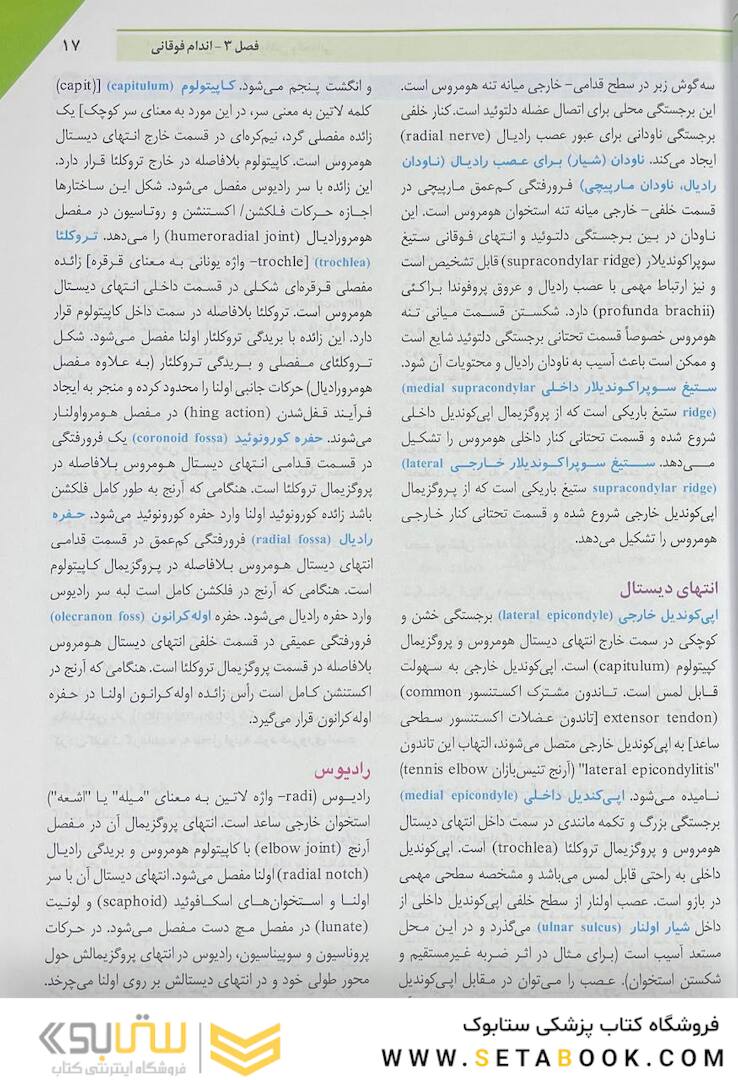 فصل ۳ - اندام فوقانی
۱۷
سه‌گوش زبر در سطح قدامی- خارجی میانه تنه هومروس است.
این برجستگی محلی برای اتصال عضله دلتوئید است. کنار خلفی
برجستگی ناودانی برای عبور عصب رادیال (radial nerve)
ایجاد می‌کند. ناودان (شیار) برای عصب رادیال (ناودان
رادیال، ناودان مارپیچی) فرورفتگی کم‌عمق مارپیچی در
قسمت خلفی- خارجی میانه تنه استخوان هومروس است. این
ناودان در بین برجستگی دلتوئید و انتهای فوقانی ستیغ
سوپراکوندیلار (supracondylar ridge) قابل تشخیص است
و نیز ارتباط مهمی با عصب رادیال و عروق پروفوندا براکئی
(profunda brachii) دارد. شکستن قسمت میانی تنه
هومروس خصوصاً قسمت تحتانی برجستگی دلتوئید شایع است
و ممکن است باعث آسیب به ناودان رادیال و محتویات آن شود.
ستیغ سوپراکوندیلار داخلی (medial supracondylar
ridge) ستیغ باریکی است که از پروگزیمال اپی‌کوندیل داخلی
شروع شده و قسمت تحتانی کنار داخلی هومروس را تشکیل
می‌دهد. ستیغ سوپراکوندیلار خارجی (lateral
supracondylar ridge) ستیغ باریکی است که از پروگزیمال
اپی‌کوندیل خارجی شروع شده و قسمت تحتانی کنار خارجی
هومروس را تشکیل می‌دهد.
انتهای دیستال
اپی‌کوندیل خارجی (lateral epicondyle) برجستگی خشن و
کوچکی در سمت خارج انتهای دیستال هومروس و پروگزیمال
کپیتولوم (capitulum) است. اپی‌کوندیل خارجی به سهولت
قابل لمس است. تاندون مشترک اکستنسور (common
extensor tendon) [تاندون عضلات اکستنسور سطحی
ساعد] به اپی‌کوندیل خارجی متصل می‌شوند، التهاب این تاندون
"lateral epicondylitis" (آرنج تنیس‌بازان tennis elbow)
نامیده می‌شود. اپی‌کندیل داخلی (medial epicondyle)
برجستگی بزرگ و تکمه مانندی در سمت داخل انتهای دیستال
هومروس و پروگزیمال تروکلئا (trochlea) است. اپی‌کوندیل
داخلی به راحتی قابل لمس می‌باشد و مشخصه سطحی مهمی
در بازو است. عصب اولنار از سطح خلفی اپی‌کوندیل داخلی از
داخل شیار اولنار (ulnar sulcus) می‌گذرد و در این محل
مستعد آسیب است (برای مثال در اثر ضربه غیرمستقیم و
شکستن استخوان). عصب را می‌توان در مقابل اپی‌کوندیل
و انگشت پنجم می‌شود. کاپیتولوم (capitulum) [(capit)
کلمه لاتین به معنی سر، در این مورد به معنای سر کوچک] یک
زائده مفصلی گرد، نیم‌کره‌ای در قسمت خارج انتهای دیستال
هومروس است. کاپیتولوم بلافاصله در خارج تروکلئا قرار دارد.
این زائده با سر رادیوس مفصل می‌شود. شکل این ساختارها
اجازه حرکات فلکشن/ اکستنشن و روتاسیون در مفصل
هومرورادیال (humeroradial joint) را می‌دهد. تروکلئا
(trochlea) [trochle- واژه یونانی به معنای قرقره] زائده
مفصلی قرقره‌ای شکلی در قسمت داخلی انتهای دیستال
هومروس است. تروکلئا بلافاصله در سمت داخل کاپیتولوم قرار
دارد. این زائده با بریدگی تروکلئار اولنا مفصل می‌شود. شکل
تروکلئای مفصلی و بریدگی تروکلئار (به علاوه مفصل
هومرورادیال) حرکات جانبی اولنا را محدود کرده و منجر به ایجاد
فرآیند قفل‌شدن (hing action) در مفصل هومرواولنار
می‌شوند. حفره کورونوئید (coronoid fossa) یک فرورفتگی
در قسمت قدامی انتهای دیستال هومروس بلافاصله در
پروگزیمال تروکلئا است. هنگامی که آرنج به طور کامل فلکشن
باشد زائده کورونوئید اولنا وارد حفره کورونوئید می‌شود. حفره
رادیال (radial fossa) فرورفتگی کم‌عمق در قسمت قدامی
انتهای دیستال هومروس بلافاصله در پروگزیمال کاپیتولوم
است. هنگامی که آرنج در فلکشن کامل است لبه سر رادیوس
وارد حفره رادیال می‌شود. حفره اوله‌کرانون (olecranon foss)
فرورفتگی عمیقی در قسمت خلفی انتهای دیستال هومروس
بلافاصله در قسمت پروگزیمال تروکلئا است. هنگامی که آرنج در
اکستنشن کامل است رأس زائده اوله‌کرانون اولنا در حفره
اوله‌کرانون قرار می‌گیرد.
رادیوس
رادیوس (radi- واژه لاتین به معنای "میله" یا "اشعه")
استخوان خارجی ساعد است. انتهای پروگزیمال آن در مفصل
آرنج (elbow joint) با کاپیتولوم هومروس و بریدگی رادیال
(radial notch) اولنا مفصل می‌شود. انتهای دیستال آن با سر
اولنا و استخوان‌های اسکافوئید (scaphoid) و لونیت
(lunate) در مفصل مچ دست مفصل می‌شود. در حرکات
پروناسیون و سوپیناسیون، رادیوس در انتهای پروگزیمالش حول
محور طولی خود و در انتهای دیستالش بر روی اولنا می‌چرخد.
فروشگاه کتاب پزشکی ستابوک
WWW.SETABOOK.COM
ستابوک
فروشگاه اینترنتی کتاب